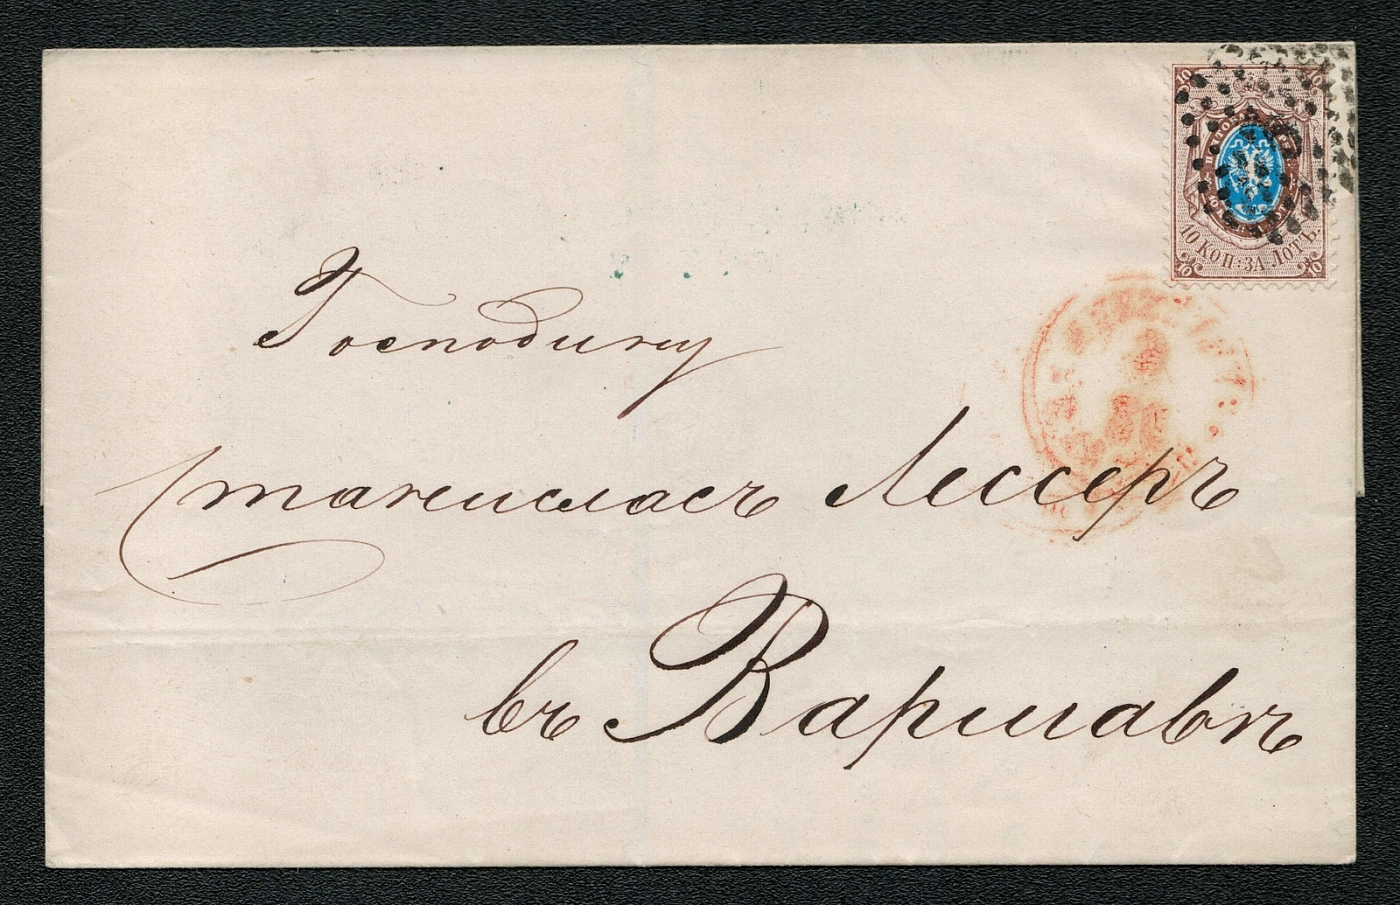 10 10
10 КОП: ЗА ЛОТЪ.
10 10
Господину
Станиславъ Лессеръ
въ Варшавѣ